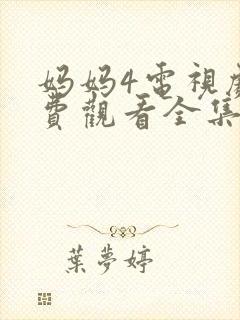 妈妈4电視
費觀看全集
葉夢婷